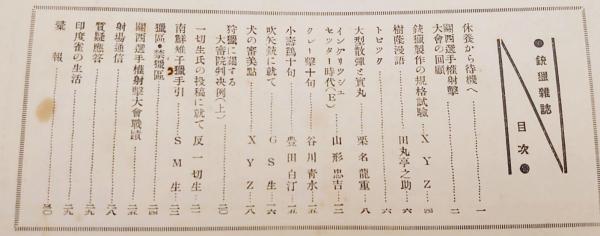 銃獵雜誌
目次
休養から待機へ……一
關西選手權射擊
大會の回顧……二
銃獵製作の規格試驗……X Y Z…四
樹蔭漫語……田丸亭之助…六
トピック……六
大型散彈と實丸……栗名龍重…八
イングリツシュ
セツター時代(E)……山形忠吉…一二
クレー擊十句……谷川靑水…一五
小壽鷄十句……豊田白汀…一五
吹矢銃に就て……G S 生…一六
犬の審美點……X Y Z…一八
狩獵に關する
大審院判決例(上)……二〇
一切生氏の投稿に就て 反 一切生…二一
南鮮雉子獵手引……S M 生…二三
獵區・禁獵區……二四
關西選手權射擊大會戰績……二五
射場通信……二八
質疑應答……二九
印度雀の生活……二九
彙報……三〇